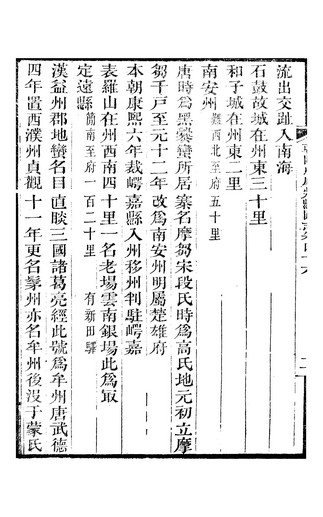 流出交趾入南海
石鼓故城在州東三十里
和子城在州東二里
南安州 雞西北至府五十里
唐時爲黑爨蠻所居寨名摩芻宋段氏時爲高氏地元初立摩
芻千戸至元十二年改爲南安州明屬楚雄府
本朝康熙六年裁㟷嘉縣入州移州判駐㟷嘉
表羅山在州西南四十里一名老場雲南銀場此爲㝡
定遠縣 簡南至府一百二十里 有新田驛
漢益州郡地蠻名目直睒三國諸葛亮經此號爲牟州唐武德
四年置西濮州貞觀十一年更名髳州亦名牟州後没于蒙氏